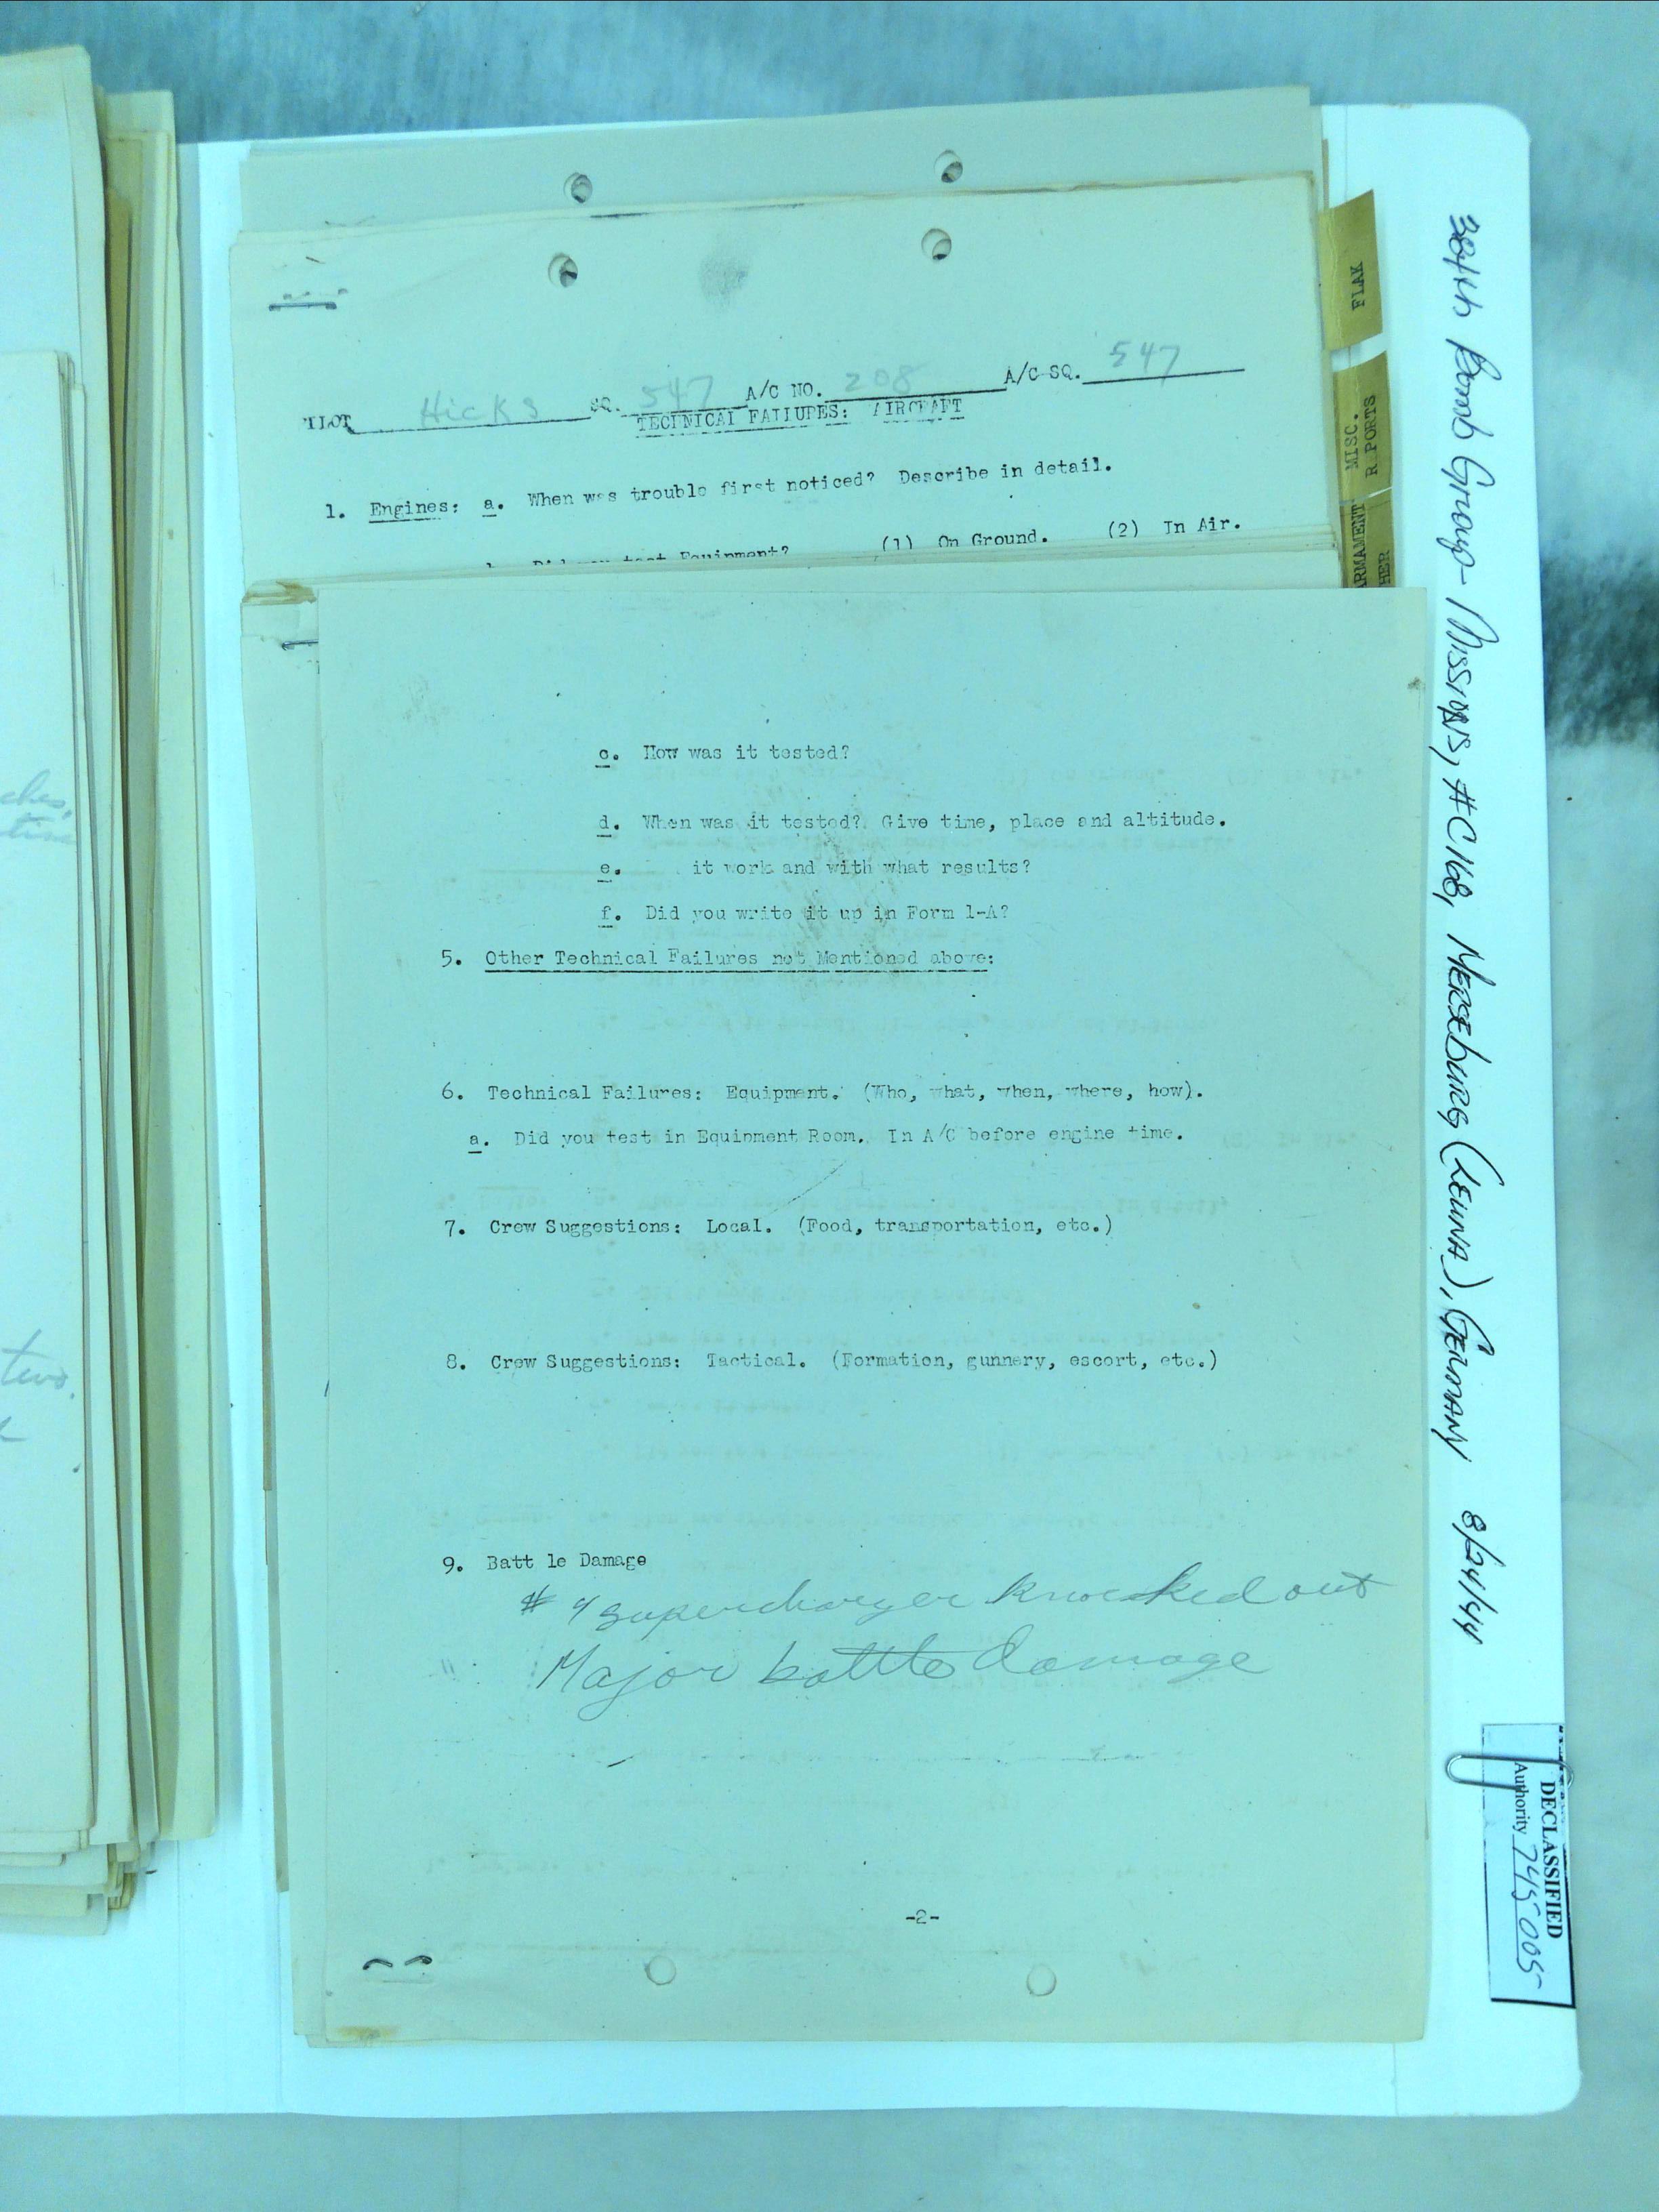 PILOT Hicks SQ. 547 A/C NO. 208 A/C SQ. 547
TECHNICAL FAILURES: AIRCRAFT
1. Engines: a. When was trouble first noticed? Describe in detail.
test Equipment? (1) On Ground. (2) In Air.
c. How was it tested?
d. When was it tested? Give time, place and altitude.
e. it work and with what results?
f. Did you write it up in Form 1-A?
5. Other Technical Failures not Mentioned above:
6. Technical Failures: Equipment. (Who, what, when, where, how).
a. Did you test in Equipment Room. In A/C before engine time.
7. Crew Suggestions: Local. (Food, transportation, etc.)
8. Crew Suggestions: Tactical. (Formation, gunnery, escort, etc.)
9. Batt le Damage
# 4 supercharger knocked out
Major battle damage
-2-
FLAK
MISC.
R PORTS
ARMAMENT
HER
384th Bomb Group - Missions, #C168, Merseburg (Leuna), Germany 8/24/44
DECLASSIFIED
Authority 745005
ches,
two.